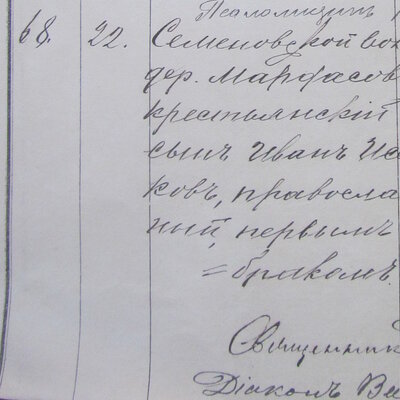 Псаломщикъ
68. 22. Семеновской вол
дер. Марфасов
крестьянскій
сынъ Иванъ Иса
ковъ, православ
ный, первымъ
=бракомъ.
Священник
Діаконъ Ва